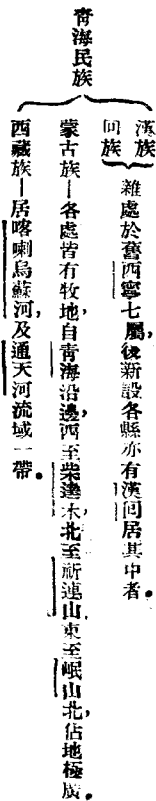 青海民族
漢族
回族
雜處於舊西寧七屬,後新設各縣亦有漢回居其中者。
蒙古族—各處皆有牧地,自青海沿邊,西至柴達木,北至祈連山,東至岷山北,佔地極廣。
西藏族—居喀喇烏蘇河,及通天河流域一帶。